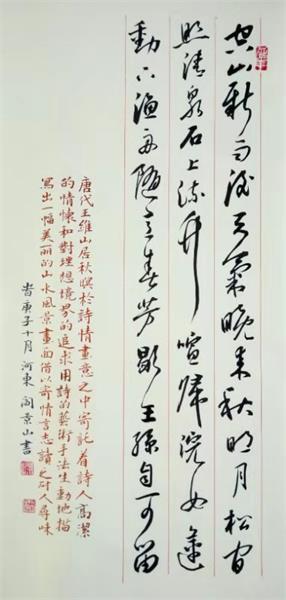 空山新雨後天氣晚來秋明月松間
照清泉石上流竹喧歸浣女蓮
動下漁舟隨意春芳歇王孫自可留
唐代王維山居秋暝於詩情畫意之中寄託着詩人高潔
的情懷和對理想境界的追求用詩的藝術手法生動地描
寫出一幅美丽的山水風景畫面借以寄情言志讀之耐人尋味
旹庚子十月河東閻景山書